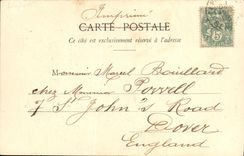 Imprimé
CARTE POSTALE
Ce côté est exclusivement réservé à l'adresse
Monsieur Marcel Bouillard
chez Monsieur Porrell
7 St John's Road
Dover
England